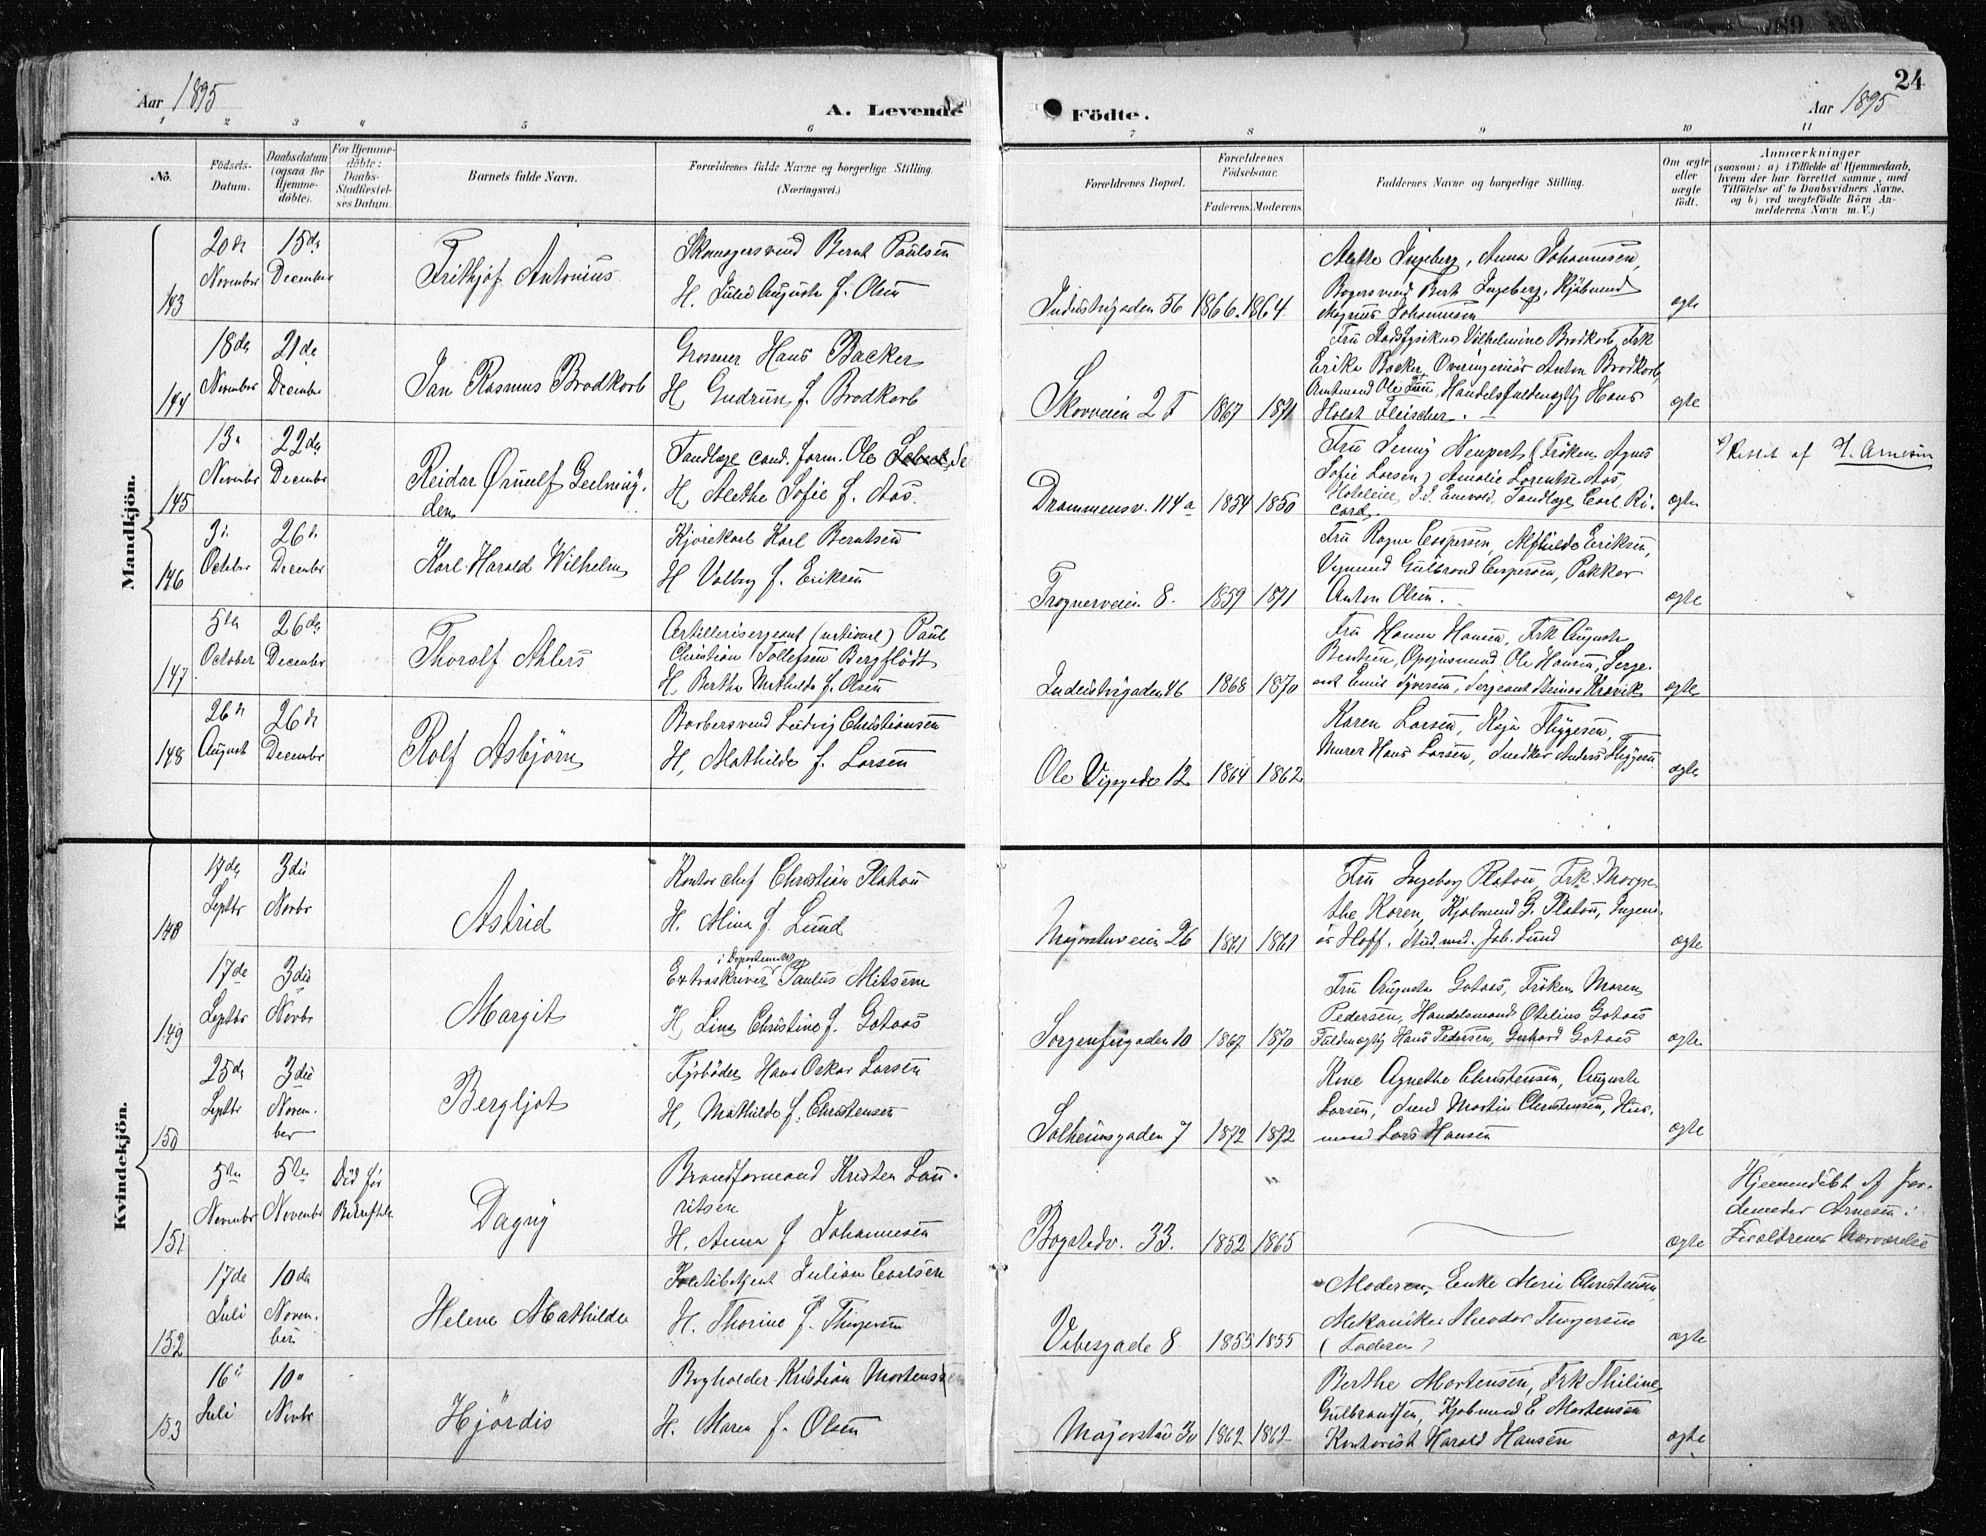 Aar 1895
A. Levende
Födte.
Aar 1895
24
1 2 3 4 5 6 7 8 9 10 11
No.
Födsels-
Datum.
Daabsdatum
(ogsaa for
Hjemme-
döbte).
For Hjemme-
döbte:
Daabs-
Stadfæstel-
ses Datum.
Barnets fulde Navn.
Forældrenes fulde Navne og borgerlige Stilling.
(Næringsvei.)
Forældrenes Bopæl.
Forældrenes
Födselsaar.
Faderens. Moderens.
Faddernes Navne og borgerlige Stilling.
Om ægte
eller
uægte
födt.
Anmærkninger
(saasom: a) i Tilfælde af Hjemmedaab,
hvem der har forrettet samme, med
Tilföielse af to Daabsvidners Navne,
og b) ved uægtefödte Börn An-
melderens Navn m. V.)
Mandkjön.
143
20de
November
15de
December
Frithjof Antonius
Skomagersvend Bernt Paulsen
H. Julie Augusta f. Olsen
Industrigaden 56 1866. 1864
Anna Johannesen,
Ingeberg, Kjöbmand
Magnus Johannesen
ægte
144
18de
November
21de
December
Jan Rasmus Brodkorb
Grosserer Hans Backer
H. Gudrun f. Brodkorb
Skovveien 2 F 1867 1871
Fru Stadsfysikus Vilhelmine Brodkorb, Frk
Erika Backer, Overingeniör Anton Brodkorb,
Handelsfuldmægtig Hans
Holst Fleischer.
ægte
145
13.
November
22de
December
Reidar Ørnulf
den
Tandlæge cand. farm. Ole
H. Alethe Sofie f. Aas
Drammensv. 114a 1854 1850
Fru Jenny Neupert (Fröken Agnes
Sofie Larsen) Amalie Lorentze Aas,
Tandlæge Carl Ri-
card.
ægte
Rettet af H. Arnesen
146
9.
October
26de
December
Karl Harald Wilhelm
Kjörekarl Karl Berntsen
H. Valborg f. Eriksen
Frognerveien 8. 1859 1871
Fru Ragna Caspersen, Alfhilde Eriksen,
Gulbrand Caspersen, Pakker
Anton Olsen.
ægte
147
5te
October
26de
December
Thoralf Ahlers
Artillerisergeant (nationl) Paul
Christian Tollefsen Bergflödt
H. Berthe Mathilde f. Olsen
Industrigaden 46 1868 1870
Fru Hanna Hansen, Frk Augusta
Bentsen, Ole Hansen, Serge-
ant Emil Syversen, Sergeant Steinar Kravik
ægte
148
26de
August
26de
December
Rolf Asbjörn
Barbersvend Ludvig Christiansen
H. Mathilde f. Larsen
Ole Vigsgade 12 1864 1862
Karen Larsen, Kaja Thygesen,
Murer Hans Larsen, Snedker Anders Thygesen
ægte
Kvindekjön.
148
17de
Septbr
3die
Novbr
Astrid
Kontorchef Christian Platou
H. Alina f. Lund
Majorstuveien 26 1861 1861
Fru Ingeborg Platou, Frk. Margre-
the Koren, Kjöbmand G. Platou, Ingeni-
ör Hoff, Stud. med. Joh. Lund
ægte
149
17de
Septbr
3die
Novbr
Margit
i Departementet
Extraskriver Paulus Nilsen
H. Lina Christine f. Gotaas
Sorgenfrigaden 10 1867 1870
Fru Augusta Gotaas, Fröken Maren
Pedersen, Handelsmand Otelius Gotaas
Fuldmægtig Hans Pedersen, Gerhard Gotaas
ægte
150
25de
Septbr
3die
Novem-
ber
Bergljot
Fyrböder Hans Oskar Larsen
H. Mathilde f. Christensen
Solheimsgaden 7 1872 1872
Kone Agnethe Christensen, Augusta
Larsen, Smed Martin Christensen, Hus-
mand Lars Hansen
ægte
151
5te
November
5te
November
Död för
Bekræftelse
Dagny
Brandformand Kristen Lau-
ritsen
H. Anna f. Johannesen
Bogstadv. 33. 1852 1865
"
ægte
Hjemmedöbt af Jor-
demoder Arnesen i
Forældrenes Nærværelse
152
17de
Juli
10de
Novem-
ber
Helene Mathilde
Politibetjent Julian Carlsen
H. Thorine f. Thorgersen
Vibesgade 8 1855 1855
Moderen, Enke Marie Christensen,
Mekaniker Theodor Thorgersen
(Faderen)
ægte
153
16de
Juli
10"
Novbr
Hjördis
Bogholder Kristian Mortensen
H. Maren f. Olsen
Majorstuv 30 1862 1862
Berthe Mortensen, Frk Thiline
Gulbrandsen, Kjöbmand E. Mortensen
Kontorist Harald Hansen
ægte